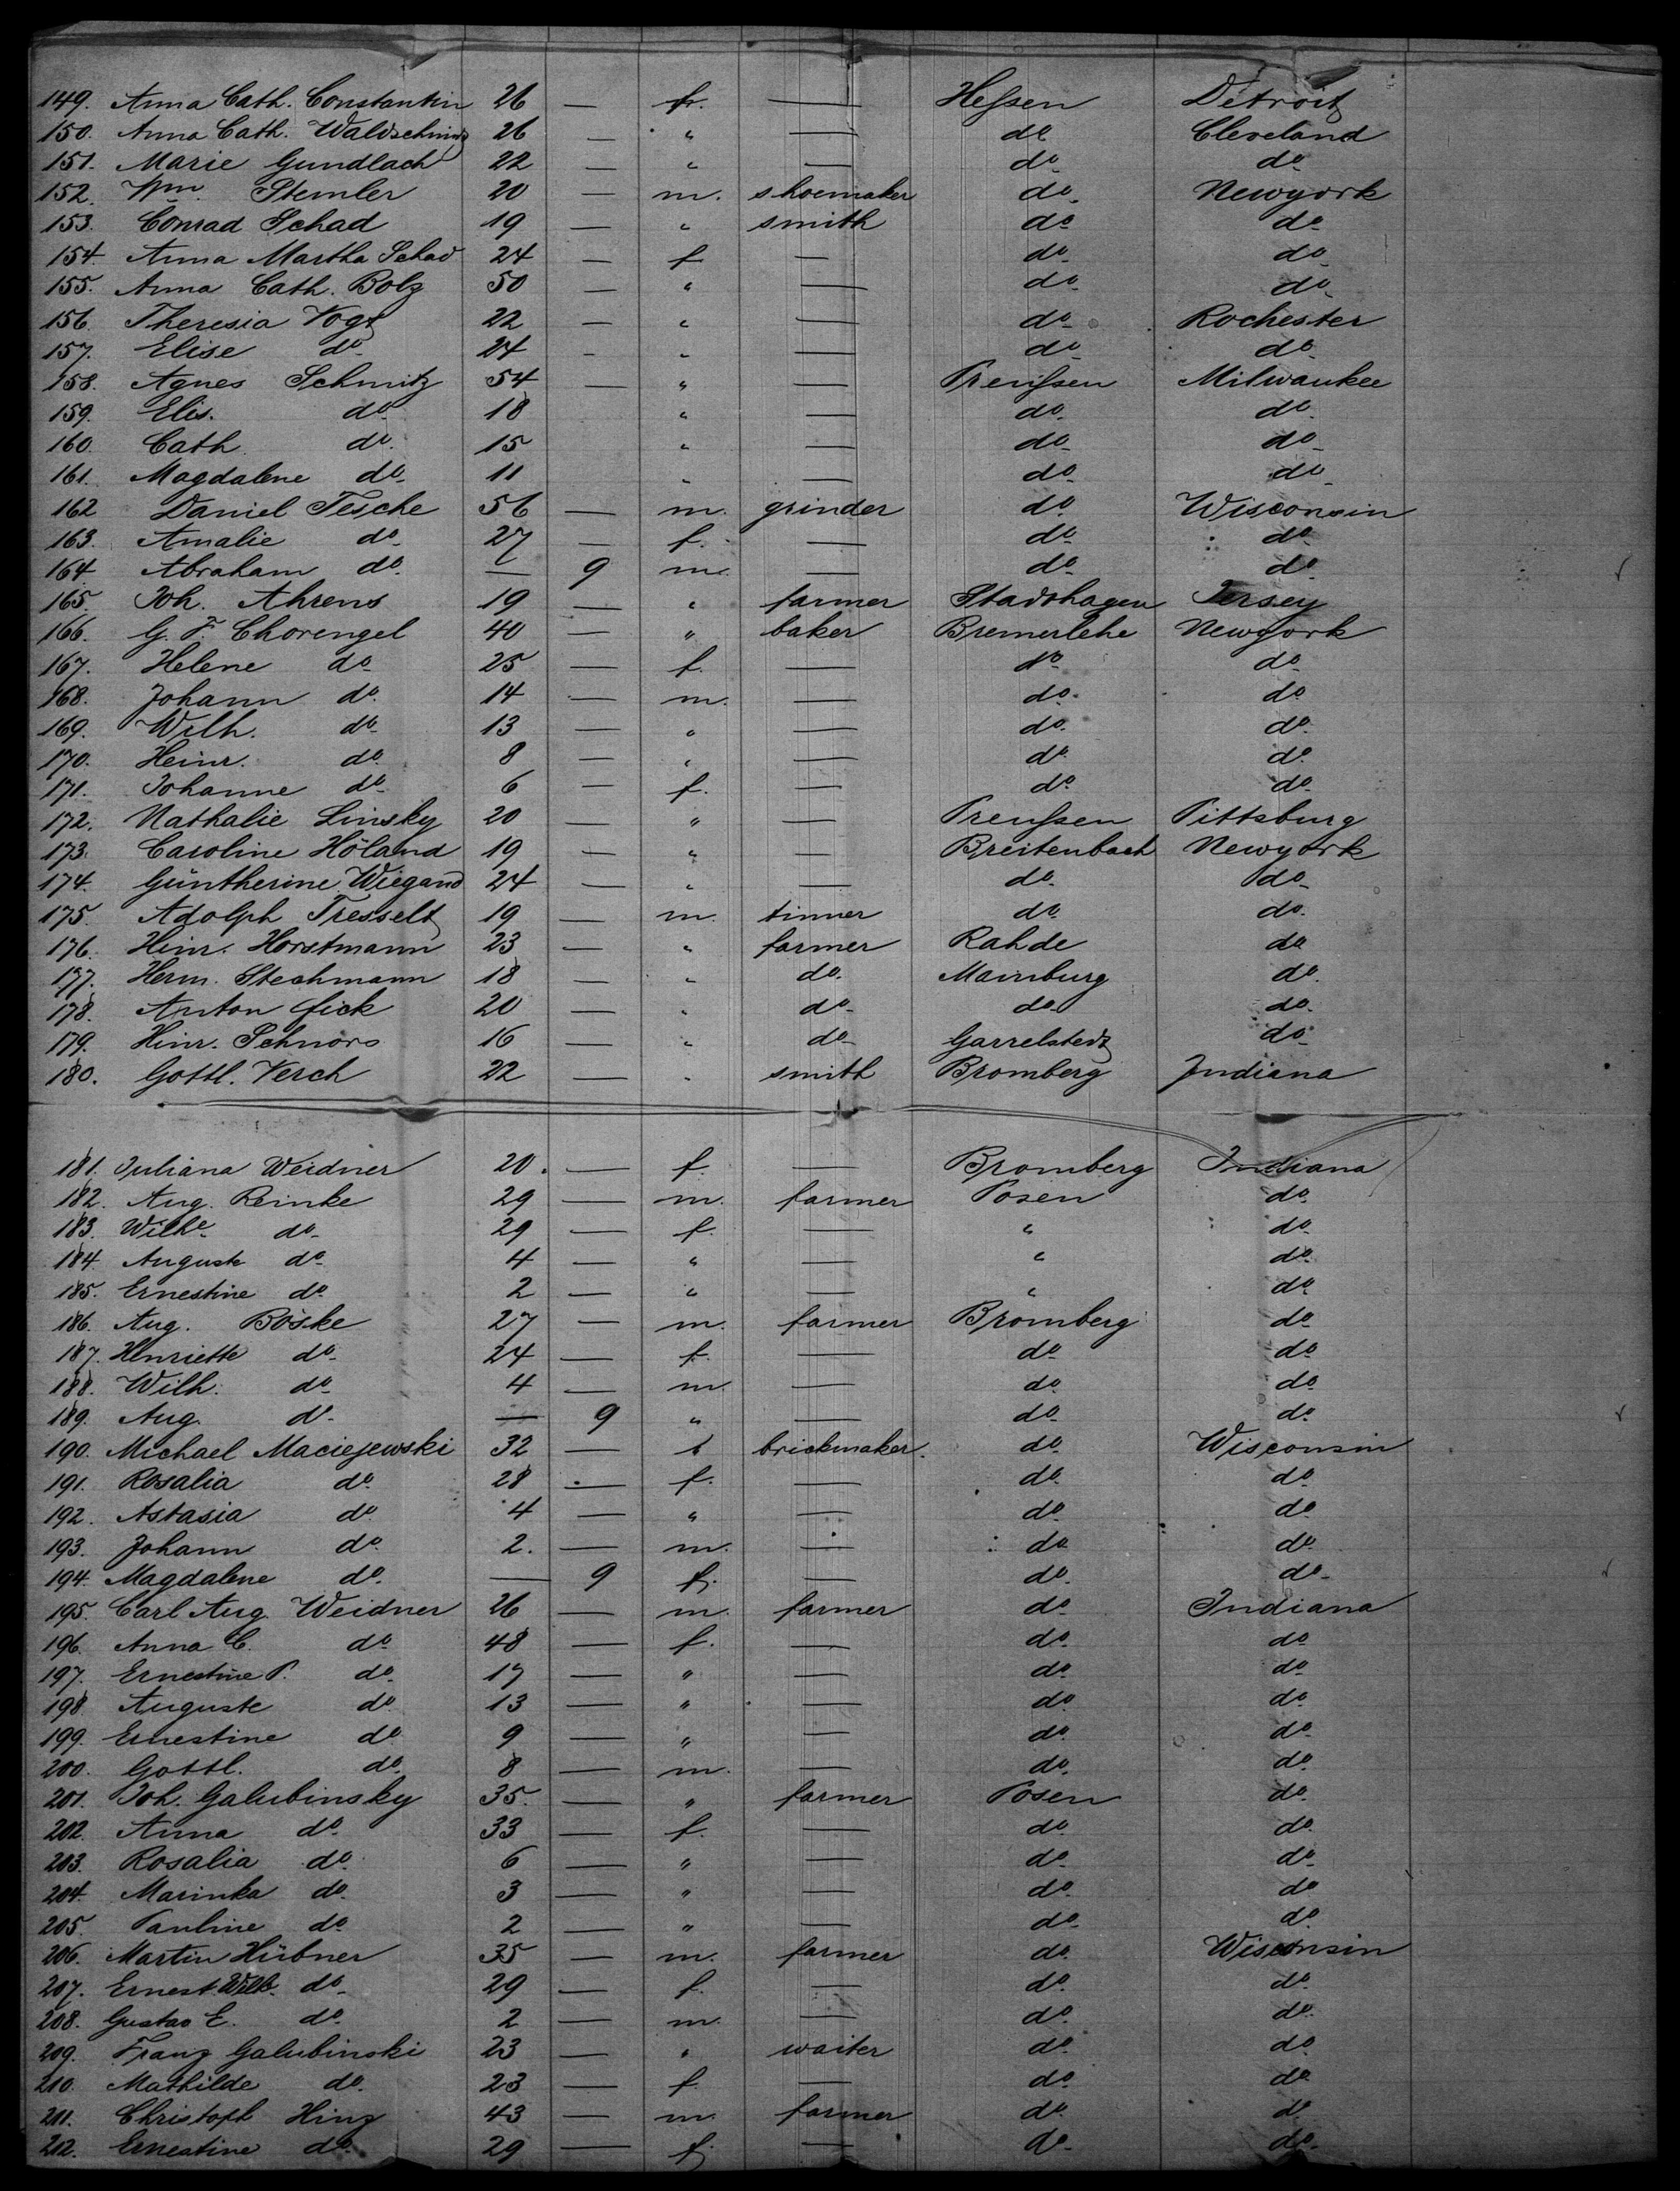 149. Anna Cath. Constantin 26 — f. — Hessen Detroit
150. Anna Cath. Waldschmidt 26 — " — do Cleveland
151. Marie Gundlach 22 — " — do do
152. Wm. Stemler 20 — m. shoemaker do Newyork
153. Conrad Schad 19 — " smith do do
154. Anna Martha Schad 24 — f — do do
155. Anna Cath. Bolz 50 — " — do do
156. Theresia Vogt 22 — " — do Rochester
157. Elise do 24 — " — do do
158. Agnes Schmitz 54 — " — Preussen Milwaukee
159. Elis. do 18 " — do do
160. Cath. do 15 " — do do
161. Magdalene do 11 " — do do
162 Daniel Tesche 56 — m. grinder do Wisconsin
163. Amalie do 27 — f. — do do
164 Abraham do — 9 m. — do do
165. Joh. Ahrens 19 — " farmer Stadthagen Jersey
166. G. F. Chorengel 40 — " baker Bremerlehe Newyork
167. Helene do 25 — f. — do do
168. Johann do 14 — m. — do do
169. Wilh. do 13 — " — do do
170. Heinr. do 8 — " — do do
171. Johanne do 6 — f. — do do
172. Nathalie Linsky 20 — " — Preussen Pittsburg
173. Caroline Höland 19 — " — Breitenbach Newyork
174. Güntherine Wiegand 24 — " — do do
175. Adolph Tresselt 19 — m. tinner do do
176. Hinr. Horstmann 23 — " farmer Rahde do
177. Herm. Stechmann 18 — " do Mainburg do
178. Anton Fick 20 — " do do do
179. Hinr. Schnors 16 — " do Garrelstedt do
180. Gottl. Verch 22 — " smith Bromberg Indiana
181. Juliana Weidner 20. — f. — Bromberg Indiana
182. Aug. Reinke 29 — m. farmer Posen do
183. Wilhe do 29 — f. — " do
184. Auguste do 4 — " — " do
185. Ernestine do 2 — " — " do
186. Aug. Böske 27 — m. farmer Bromberg do
187. Henriette do 24 — f. — do do
188. Wilh. do 4 — m. — do do
189. Aug. do — 9 " — do do
190. Michael Maciejewski 32 — " brickmaker. do Wisconsin
191. Rosalia do 28 — f. — do do
192. Astasia do 4 — " — do do
193. Johann do 2. — m. — do do
194. Magdalene do — 9 f. — do do
195. Carl Aug. Weidner 26 — m. farmer do Indiana
196. Anna C. do 48 — f. — do do
197. Ernestine P. do 17 — " — do do
198. Auguste do 13 — " — do do
199. Ernestine do 9 — " — do do
200. Gottl. do 8 — m. — do do
201. Joh. Galubinsky 35. — " farmer Posen do
202. Anna do 33 — f. — do do
203. Rosalia do 6 — " — do do
204. Marinka do 3 — " — do do
205. Pauline do 2 — " — do do
206. Martin Hübner 35 — m. farmer do Wisconsin
207. Ernest. Wilh. do 29 — f. — do do
208. Gustav E. do 2 — m. — do do
209. Franz Galubinski 23 — " waiter do do
210. Mathilde do 23 — f — do do
211. Christoph Hinz 43 — m. farmer do do
212. Ernestine do 29 — f. — do do